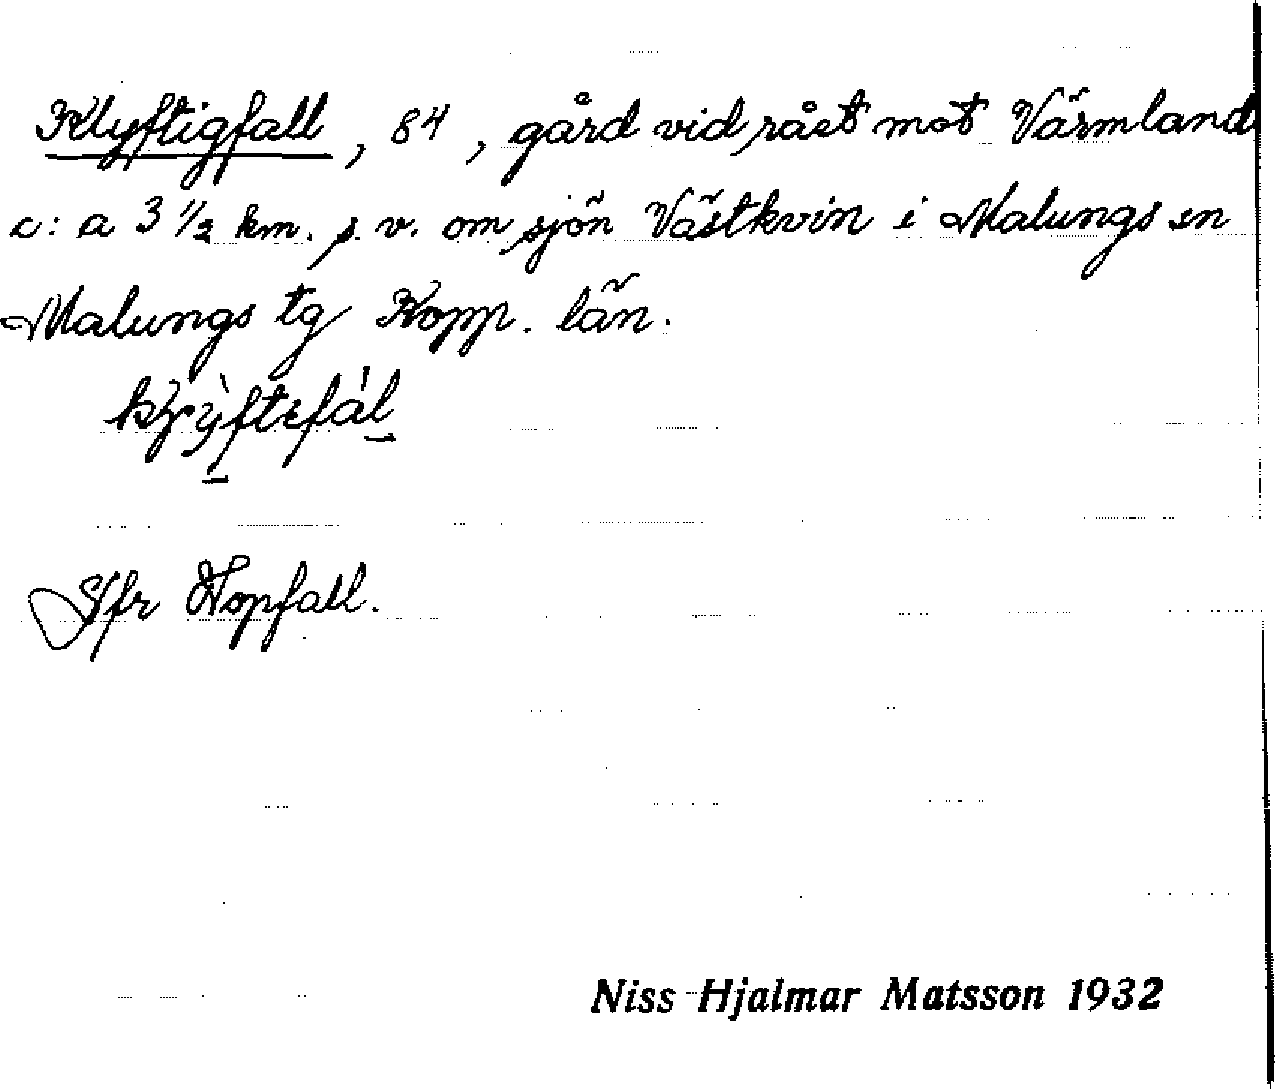 Klyftigfall, 84, gård vid rået mot Värmland
c:a 3 1/2 km. s. v. om sjön Västkvin i Malungs sn
Malungs tg Kopp. län.
Jfr Hopfall.
Niss Hjalmar Matsson 1932